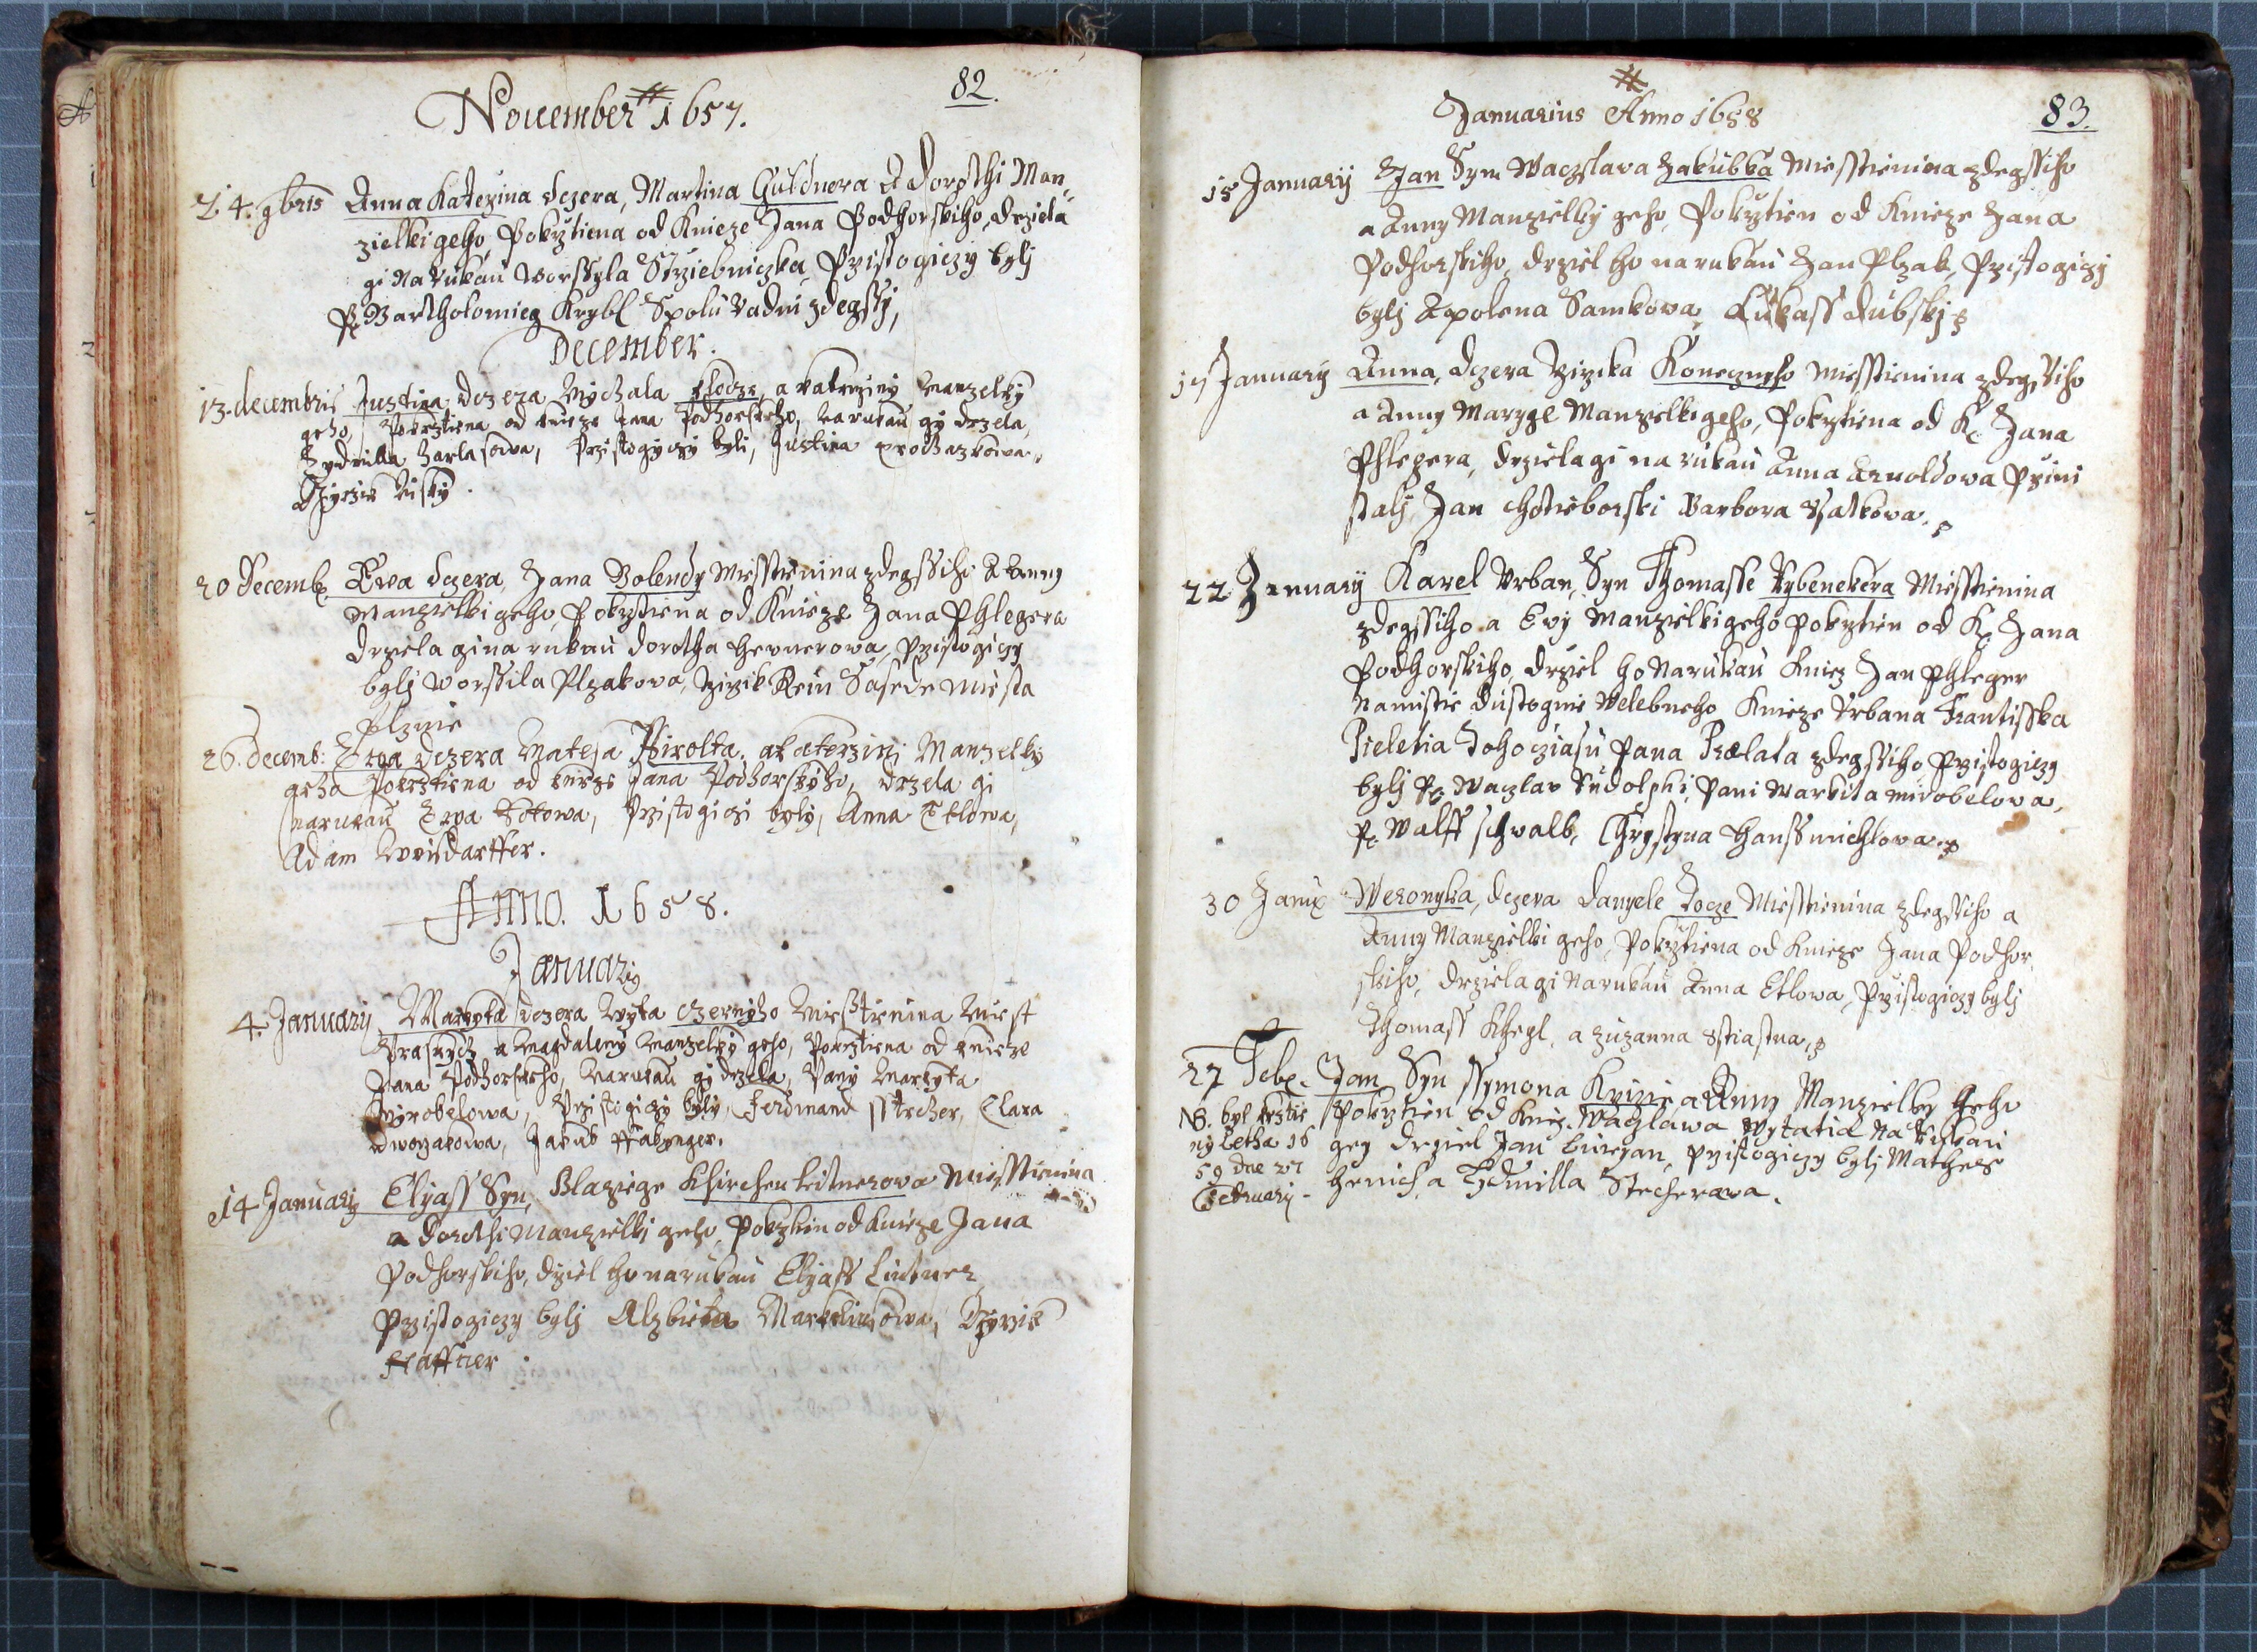 82.
November 1657.
24. 9bris Anna Katerzina dczera, Martina Guldnera a Dorothi Man-
zielki geho, Pokrztiena od Knieze Jana Podhorskiho, drziela
gi na rukau Worssyla Strziebniczka, Przistogiczy bylj
P. Bartholomieg Krybl Spolu Radni zdegssj,
December.
13. decembris Justina dczera Mychala, a Katerziny Manzelky
geho, Pokrztiena od knieze Jana Podhorskeho, na rukau gy drzela,
Lydmilla Harlasowa, Przistogyczy byli, Justina Prochazkowa,
Girzik
20 Decemb. Ewa dczera, Jana Bolendy Miesstienina zdegssiho a Anny
Manzielki geho, Pokrztiena od Knieze Jana Phlegera
drziela gi na rukau Dorotha Hevnerowa, Przistogiczy
bylj Worssila Plzakova, Girzik Rein Sasede Miesta
Plznie
26. decemb: Ewa dczera Mateja Hirolta, a Katerzinj Manzelky
geho Pokrztiena od knieze Jana Podhorskyho, drzela gi
na rukau Ewa, Przistogiczi byly, Anna Etlowa,
Adam
Anno. 1658.
Januarij
4. Januarij Markyta dczera Wyta Czernyho Miesstienina Miest
Praskych a Magdaleny Manzelky geho, Pokrztiena od knieze
Jana Podhorskeho, na rukau gy drzela, Pany Markyta
Myrobelowa, Przistogiczy byly, Ferdinand, Clara
Dworzakowa, Jakub
14 Januarij Elyass Syn, Blaziege Khirchenleitnerowa Miesstienina
a Dorothi Manzielki geho, Pokrztien od knieze Jana
Podhorskiho, drziel ho na rukau Elyass Lintner
Przistogiczy bylj Alzbieta, Girzik
Haffner
83.
Januarius Anno 1658
15 Januarij Jan Syn Waczslava Jakubka Miesstienina zdegssiho
a Anny Manzielky geho, Pokrztien od Knieze Jana
Podhorskiho, drziel ho na rukau Jan Plzak, Przistogiczj
bylj Apolena Samkowa, Lukass Dubskj
17 Januarij Anna, dczera Girzika Koneczneho Miesstienina zdegssiho
a Anny Maryge Manzielki geho, Pokrztiena od K. Jana
Phlegera, drziela gi na rukau Anna Arnoldowa Przini
stalj Jan Chotieborski Barbora
22 Januarij Karel Urban, Syn Thomasse Rybenekera Miesstienina
zdegssiho a Ewy Manzielki geho Pokrztien od K. Jana
Podhorskiho, drziel ho na rukau Kniez Jan Phleger
Namistie dustognie Welebneho Knieze Urbana Frantisska
toho cziasu Pana Prælata zdegssiho Przistogiczy
bylj P. Waczlav Rudolphi, Pani Markita Mirobelowa,
P. Walff Schwalb, Chrystyna Hanssmichlowa.
30 Janu. Weronyka, dczera Danyele Tocze Miesstienina zdegssiho a
Anny Manzielki geho, Pokrztiena od Knieze Jana Podhor
skiho, drziela gi na rukau Anna Etlowa, Przistogiczy bylj
Thomass Khegl, a Zuzanna Sstiastna,
27 Feb. Jan Syn Ssymona a Anny Manzielky geho
NB. byl krztie Pokrztien od Kniez. Waczlawa Wytatia na rukau
ny Letha 16 gey drziel Jan Buryan, Przistogiczy bylj Mathes
59 die 27 Henich a Lidmilla Stecherowa.
February -